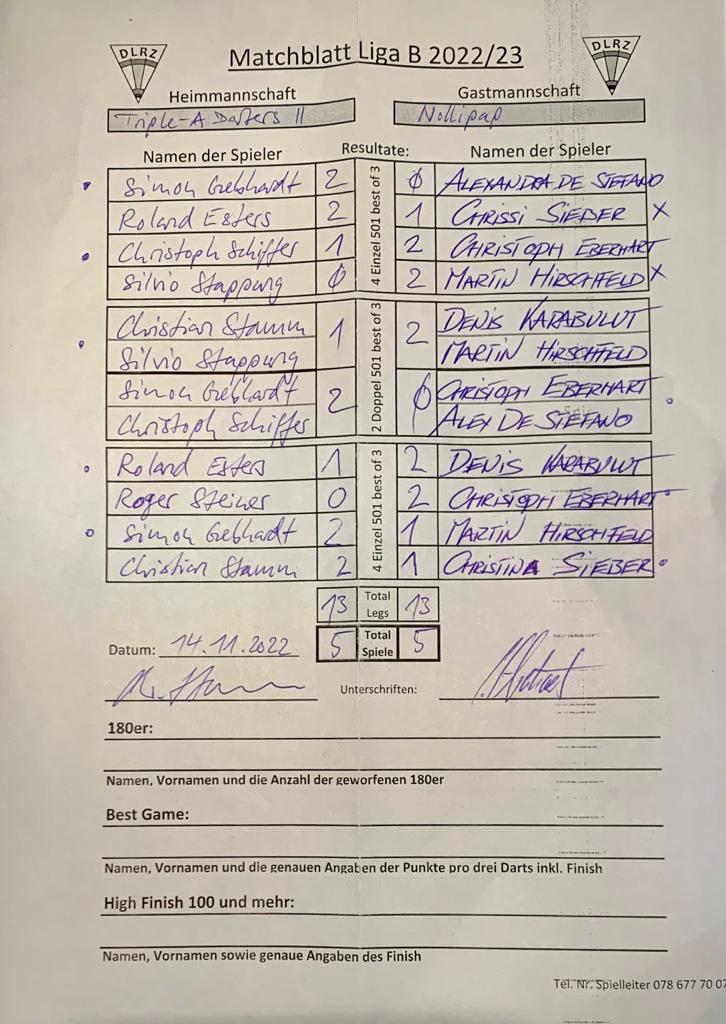 DLRZ Matchblatt Liga B 2022/23 DLRZ
Heimmannschaft Gastmannschaft
Triple-A Darters II Nollipap
Namen der Spieler Resultate: Namen der Spieler
4 Einzel 501 best of 3
Simon Gebhardt 2 0 ALEXANDRA DE STEFANO
Roland Esters 2 1 CHRISSI SIEBER X
Christoph Schiffer 1 2 CHRISTOPH EBERHART
Silvio Stappung 0 2 MARTIN HIRSCHFELD X
2 Doppel 501 best of 3
Christian Stamm 1 2 DENIS KARABULUT
Silvio Stappung MARTIN HIRSCHFELD
Simon Gebhardt 2 0 CHRISTOPH EBERHART
Christoph Schiffer ALEX DE STEFANO
4 Einzel 501 best of 3
Roland Esters 1 2 DENIS KARABULUT
Roger Steiner 0 2 CHRISTOPH EBERHART
Simon Gebhardt 2 1 MARTIN HIRSCHFELD
Christian Stamm 2 1 CHRISTINA SIEBER
13 Total Legs 13
Datum: 14.11.2022 5 Total Spiele 5
Unterschriften:
180er:
Namen, Vornamen und die Anzahl der geworfenen 180er
Best Game:
Namen, Vornamen und die genauen Angaben der Punkte pro drei Darts inkl. Finish
High Finish 100 und mehr:
Namen, Vornamen sowie genaue Angaben des Finish
Tel. Nr. Spielleiter 078 677 70 07